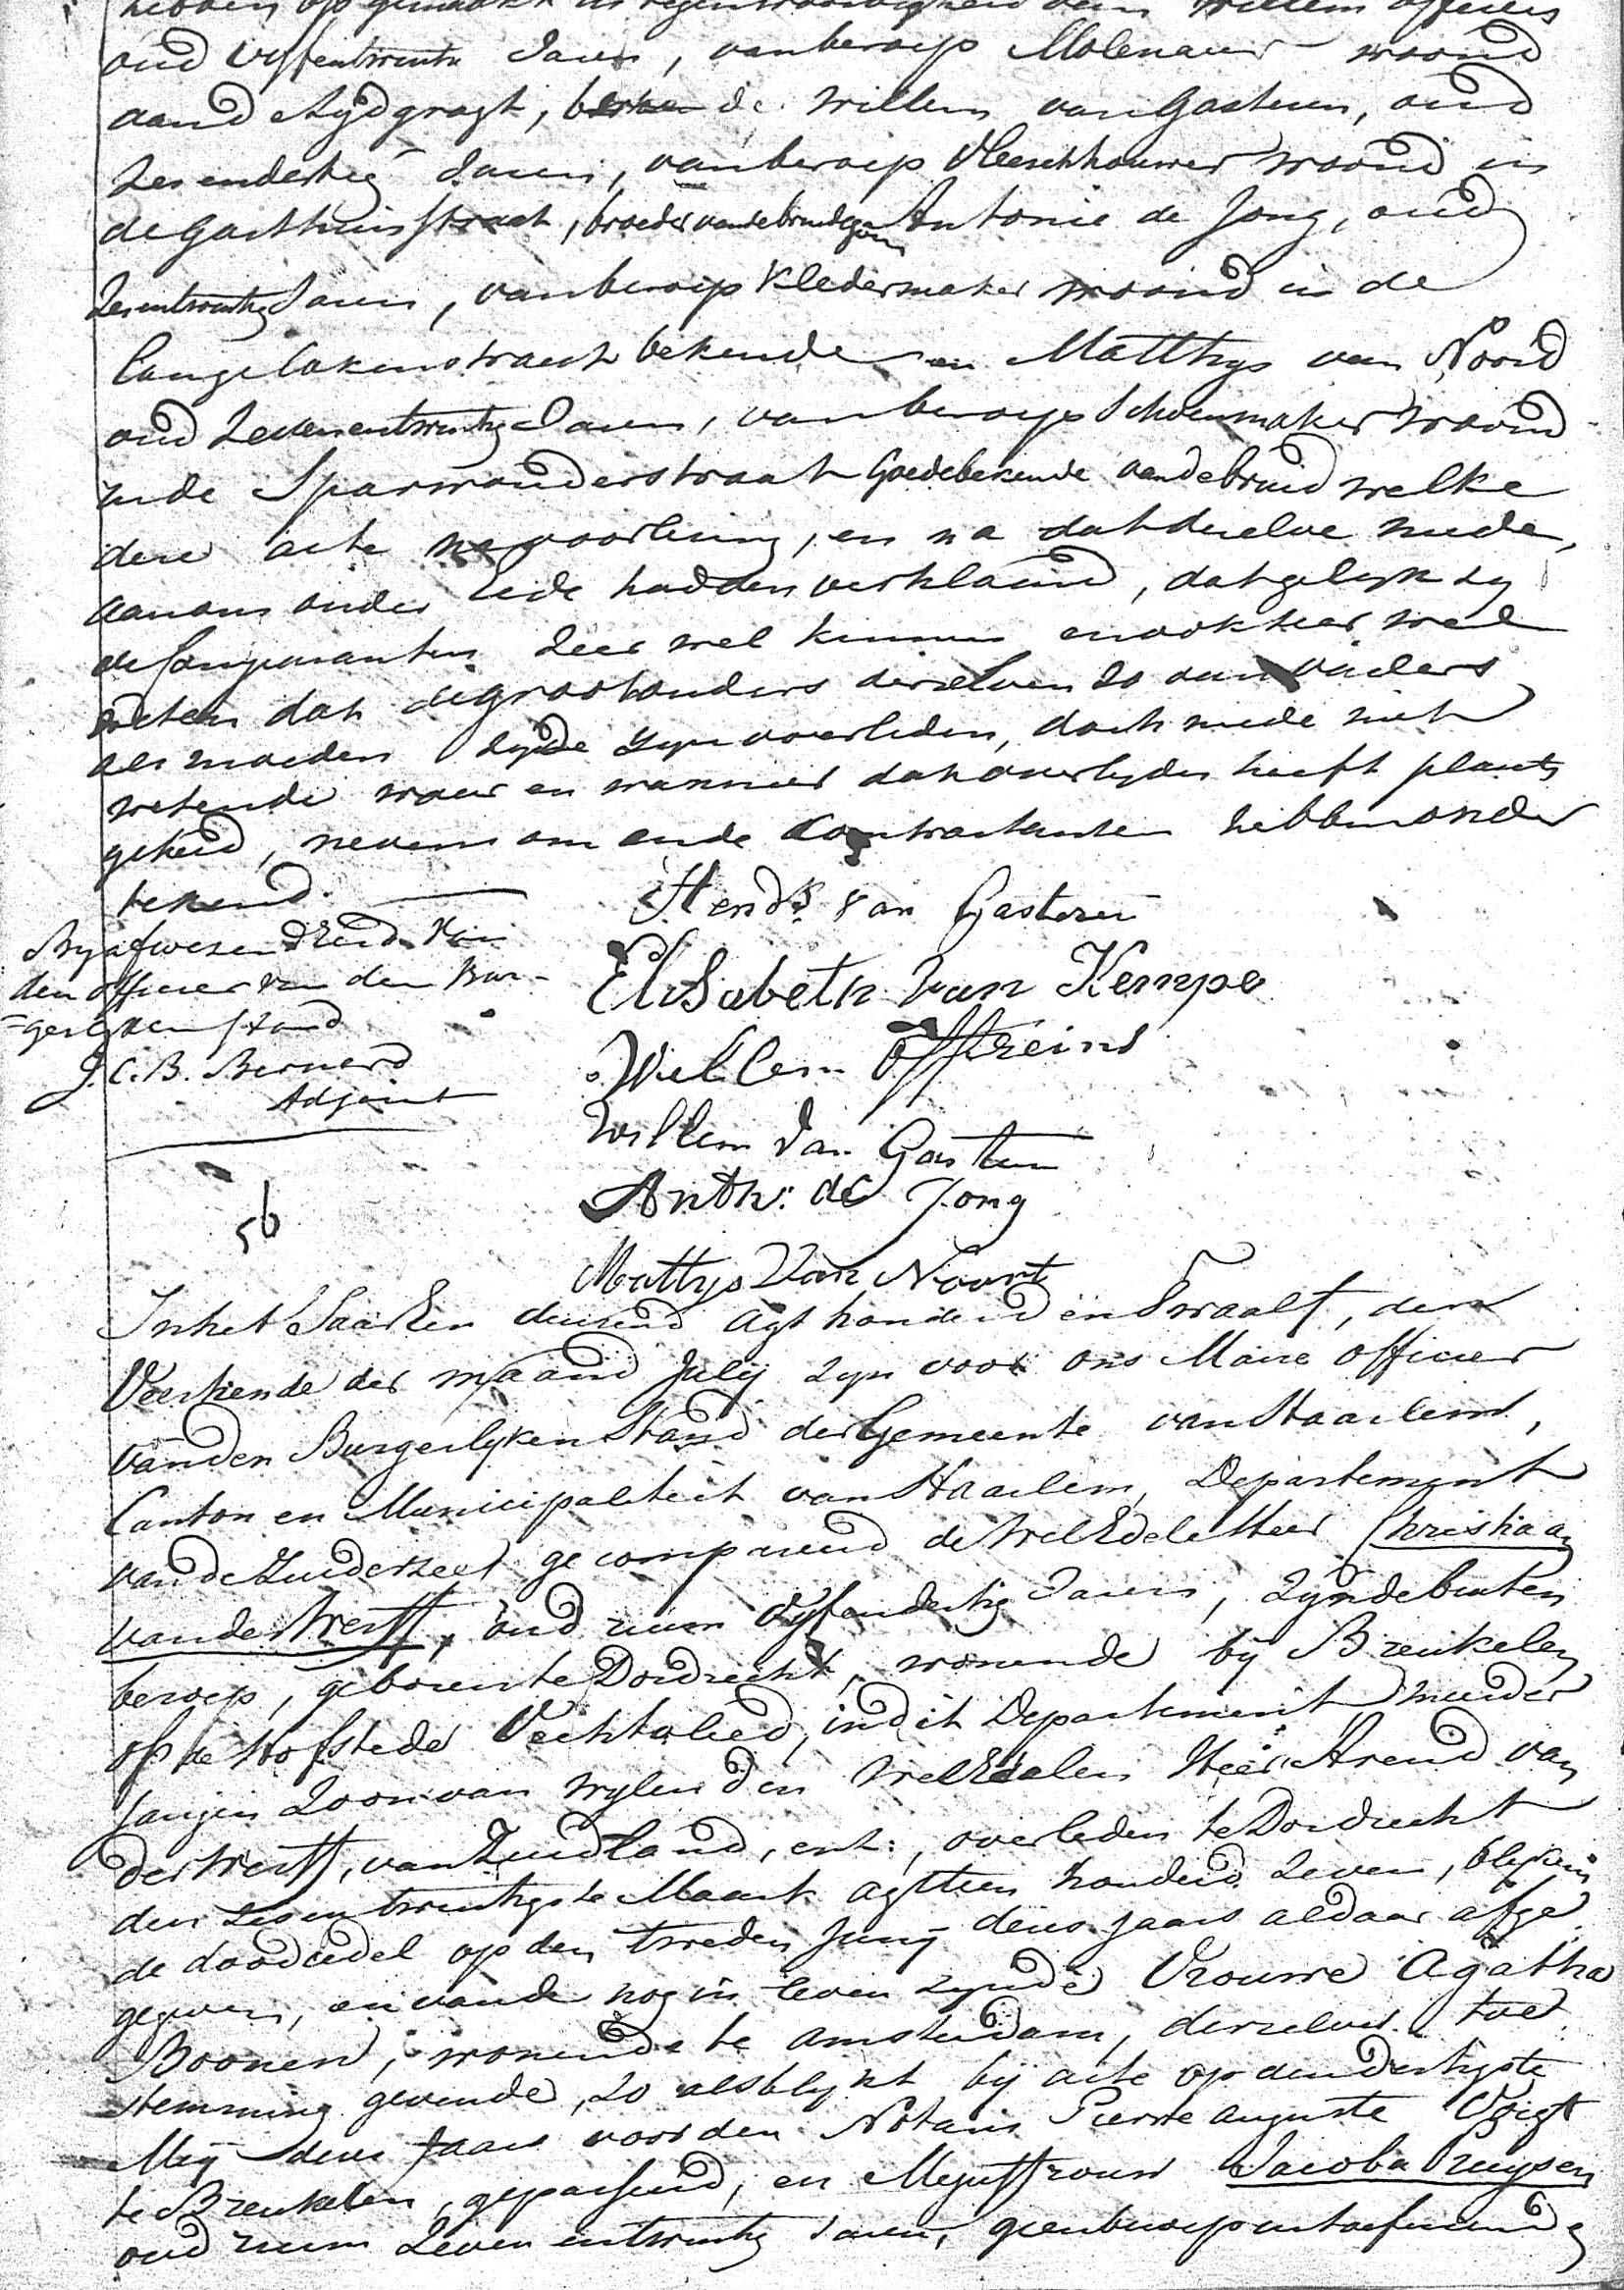 hebben op gemaakt in tegenwoordigheid van Willem offreins
oud vyfentwintig Jaren, van beroep Molenaar woond
aand Lydgragt, de Willem van Gasteren, oud
Zesendertig Jaren, van beroep Vleeschhouwer woond in
de Gasthuisstraat, broeder vande bruidegom Antonie de Jong, oud
Zesentwintig Jaren, van beroep Kledermaker woond in de
Lange lakenstraat bekende en Matthys van Noord
oud Zevenentwintig Jaren, van beroep Schoenmaker woond
in de Sparwouderstraat Goede bekende van de bruid welke
deze acte na voorlezing, en na dat dezelve mede
aan ons onder Eede hadden verklaard, dat gelyk zy
de Comparanten zeer wel kennen en ook zeer wel
weten dat de grootouders derzelven zo van vaders
als moeders zyde zyn overleden, doch mede niet
wetende waar en wanneer dat overlyden heeft plaats
gehad, nevens ons ende Contractanten hebben onder
tekend.
Hend.k van Gasteren
By afwezendheid van
den officier van den Bur-
=gerlyken stand
J. C. B. Bernard
Adjoint
Elisabeth Van Kempe
Willem Offreins
Willem Van Gasteren
Anth: de Jong
Mattys Van Noort
56
In het Jaar Een duizend Agt honderd en Twaalf, den
Veertiende der maand July zyn voor ons Maire officier
van den Burgerlyken Stand der Gemeente van Haarlem,
Canton en Municipaliteit van Haarlem, Departement
van de Zuiderzee gecompareerd de WelEdele Heer Christiaan
van der Werff, oud ruim Vyfendertig Jaren, zynde buiten
beroep, geboren te Dordrecht, wonende by Breukelen
op de Hofstede Vechtvlied, in dit Departement meerder
jarigen Zoon van wylen den WelEdelen Heer Arend van
der Werff, van Zuidland, ent:, overleden te Dordrecht
den zesentwintigste Maart agttien honderd zeven, blykens
de doodcedel op den tweeden Juny dezes jaars aldaar afge
geven, en van de nog in leven zynde Vrouwe Agatha
Boonen, wonende te Amsterdam, derzelver toe
stemming gevende, zo als blykt by acte op den dertigste
Mey dezes Jaars voor den Notaris Pierre Auguste Voigt
te Breukelen, gepasseerd, en Mejuffrouw Jacoba Kruysen
oud ruim Zeven entwintig Jaren, geen beroep uitoefenende